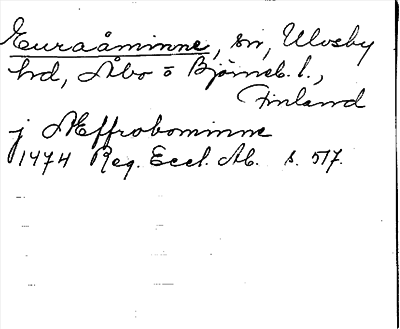 Euraåminne, sn, Ulvsby
hd, Åbo o Björneb. l.,
Finland
j Æffrobominne
1474 Reg. Eccl. Ab. s. 517.